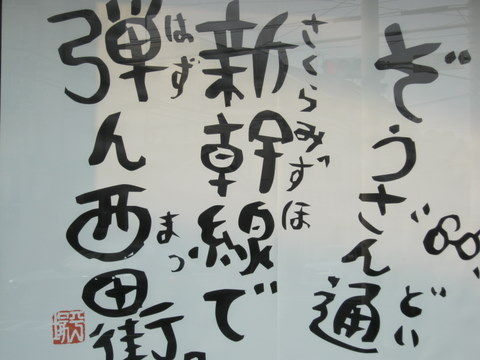 ぞうざん通
どい
さくらみずほ
新幹線で
はず
弾ん西田街。
まつ